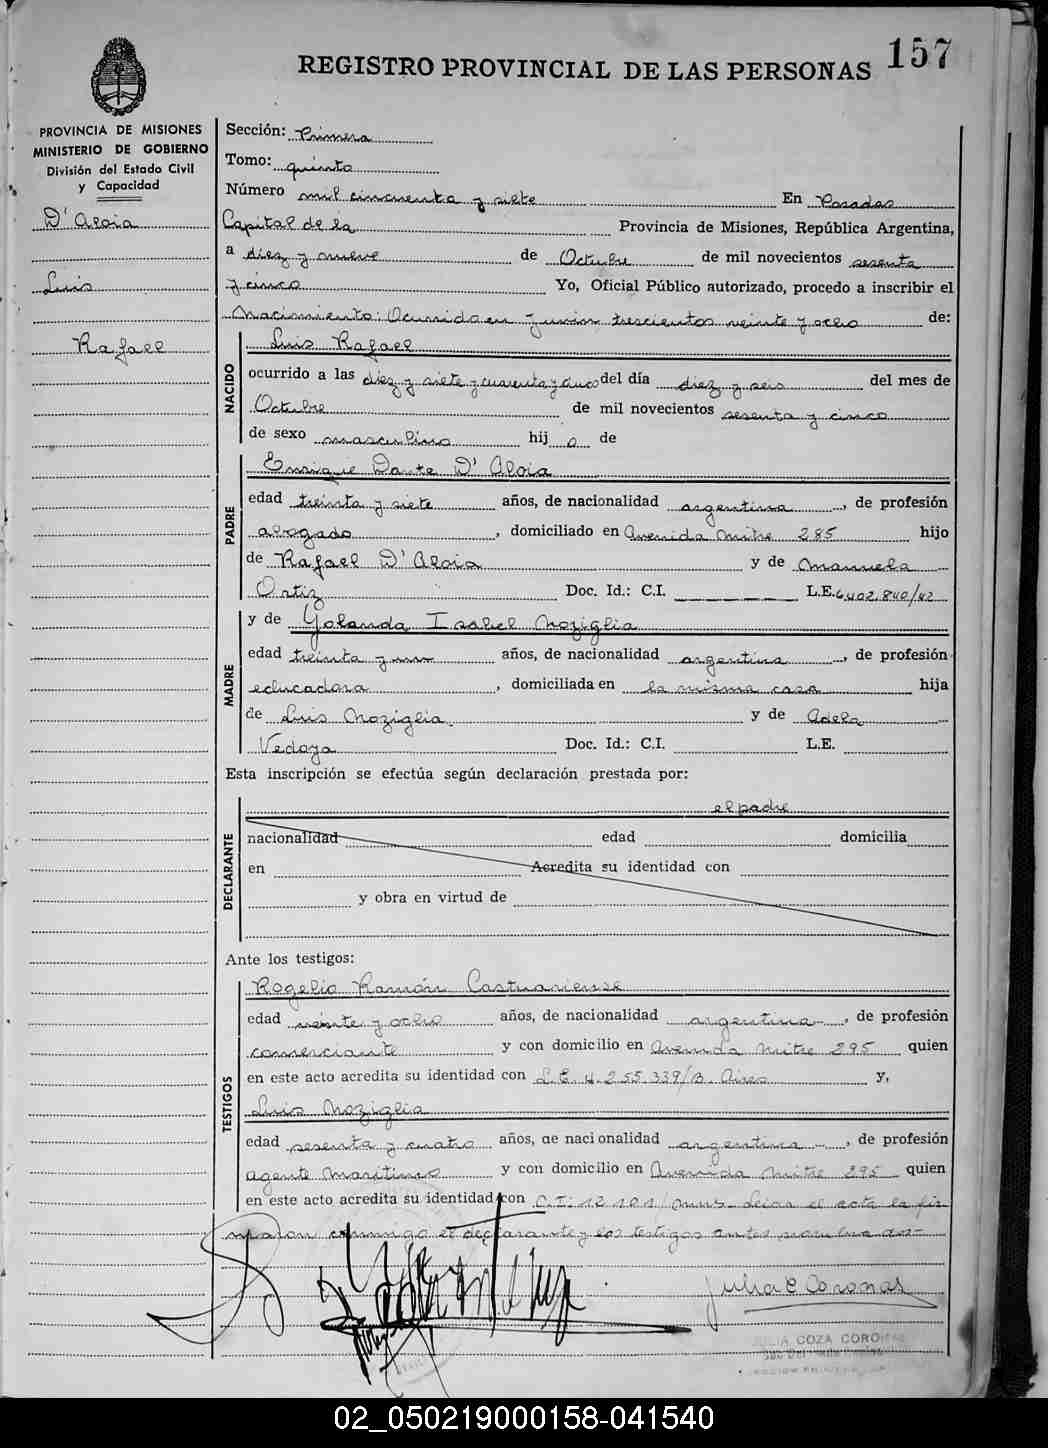 157
REGISTRO PROVINCIAL DE LAS PERSONAS
PROVINCIA DE MISIONES
MINISTERIO DE GOBIERNO
División del Estado Civil
y Capacidad
D'Aloia
Luis
Rafael
Sección: Primera
Tomo: quinto
Número mil cincuenta y siete En Posadas
Capital de la Provincia de Misiones, República Argentina,
a diez y nueve de Octubre de mil novecientos sesenta
y cinco Yo, Oficial Público autorizado, procedo a inscribir el
Nacimiento: Ocurrido en Junin trescientos veinte y ocho de:
NACIDO
Luis Rafael
ocurrido a las diez y siete y cuarenta y cinco del día diez y seis del mes de
Octubre de mil novecientos sesenta y cinco
de sexo masculino hij o de
PADRE
Enrique Dante D'Aloia
edad treinta y siete años, de nacionalidad argentina, de profesión
abogado, domiciliado en Avenida Mitre 285 hijo
de Rafael D'Aloia y de Manuela
Ortiz Doc. Id.: C.I. L.E. 6402.840/42
MADRE
y de Yolanda Isabel Noziglia
edad treinta y un años, de nacionalidad argentina, de profesión
educadora, domiciliada en la misma casa hija
de Luis Noziglia y de Adela
Vedoya Doc. Id.: C.I. L.E.
Esta inscripción se efectúa según declaración prestada por:
DECLARANTE
el padre
nacionalidad edad domicilia
en Acredita su identidad con
y obra en virtud de
Ante los testigos:
TESTIGOS
Rogelio Ramón
edad veinte y ocho años, de nacionalidad argentina, de profesión
comerciante y con domicilio en Avenida Mitre 295 quien
en este acto acredita su identidad con L.E. 4.255.339/B. Aires y,
Luis Noziglia
edad sesenta y cuatro años, de nacionalidad argentina, de profesión
agente Maritimo y con domicilio en Avenida Mitre 295 quien
en este acto acredita su identidad con C.I: 12.101/Mnes. Leida el acta la fir
maron conmigo el declarante y los testigos antes nombrados-
Julia C Coronas
JULIA COZA CORONAS
02_050219000158-041540